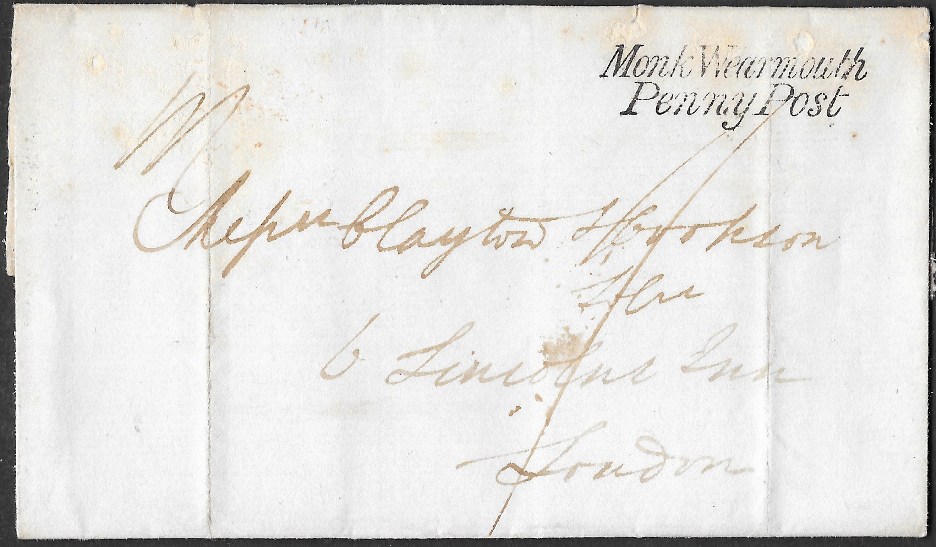 Monk Wearmouth
Penny Post
Messrs Clayton & Cookson
6 Lincolns Inn
London